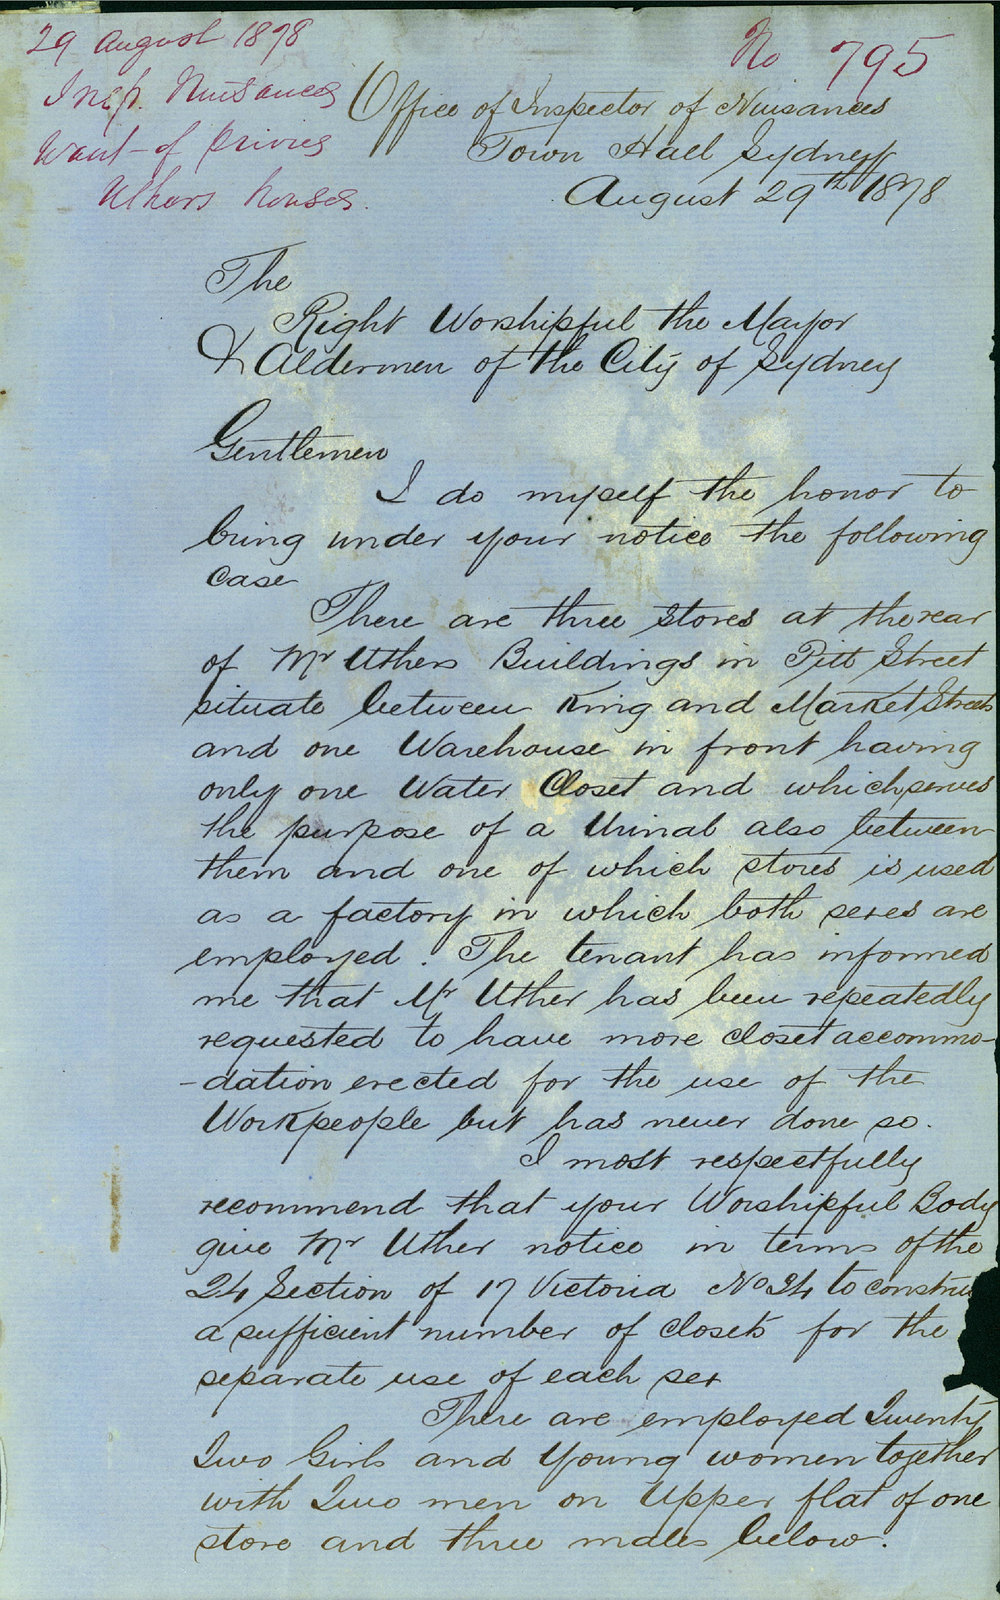 29 August 1878
No 795
Insp. Nuisances
Want of privies
Uthers houses.
Office of Inspector of Nuisances
Town Hall Sydney
August 29th 1878
The
Right Worshipful the Mayor
& Aldermen of the City of Sydney
Gentlemen
I do myself the honor to
bring under your notice the following
case
There are three stores at the rear
of Mr Uthers Buildings in Pitt Street
situate between King and Market Streets
and one Warehouse in front having
only one Water Closet and which serves
the purpose of a Urinal also between
them and one of which stores is used
as a factory in which both sexes are
employed. The tenant has informed
me that Mr Uther has been repeatedly
requested to have more closet accommo-
-dation erected for the use of the
Workpeople but has never done so.
I most respectfully
recommend that your Worshipful Body
give Mr Uther notice in terms of the
24 Section of 17 Victoria No 34 to constru
a sufficient number of closets for the
separate use of each sex
There are employed Twenty
Two Girls and Young women together
with Two men on Upper flat of one
store and three males below.